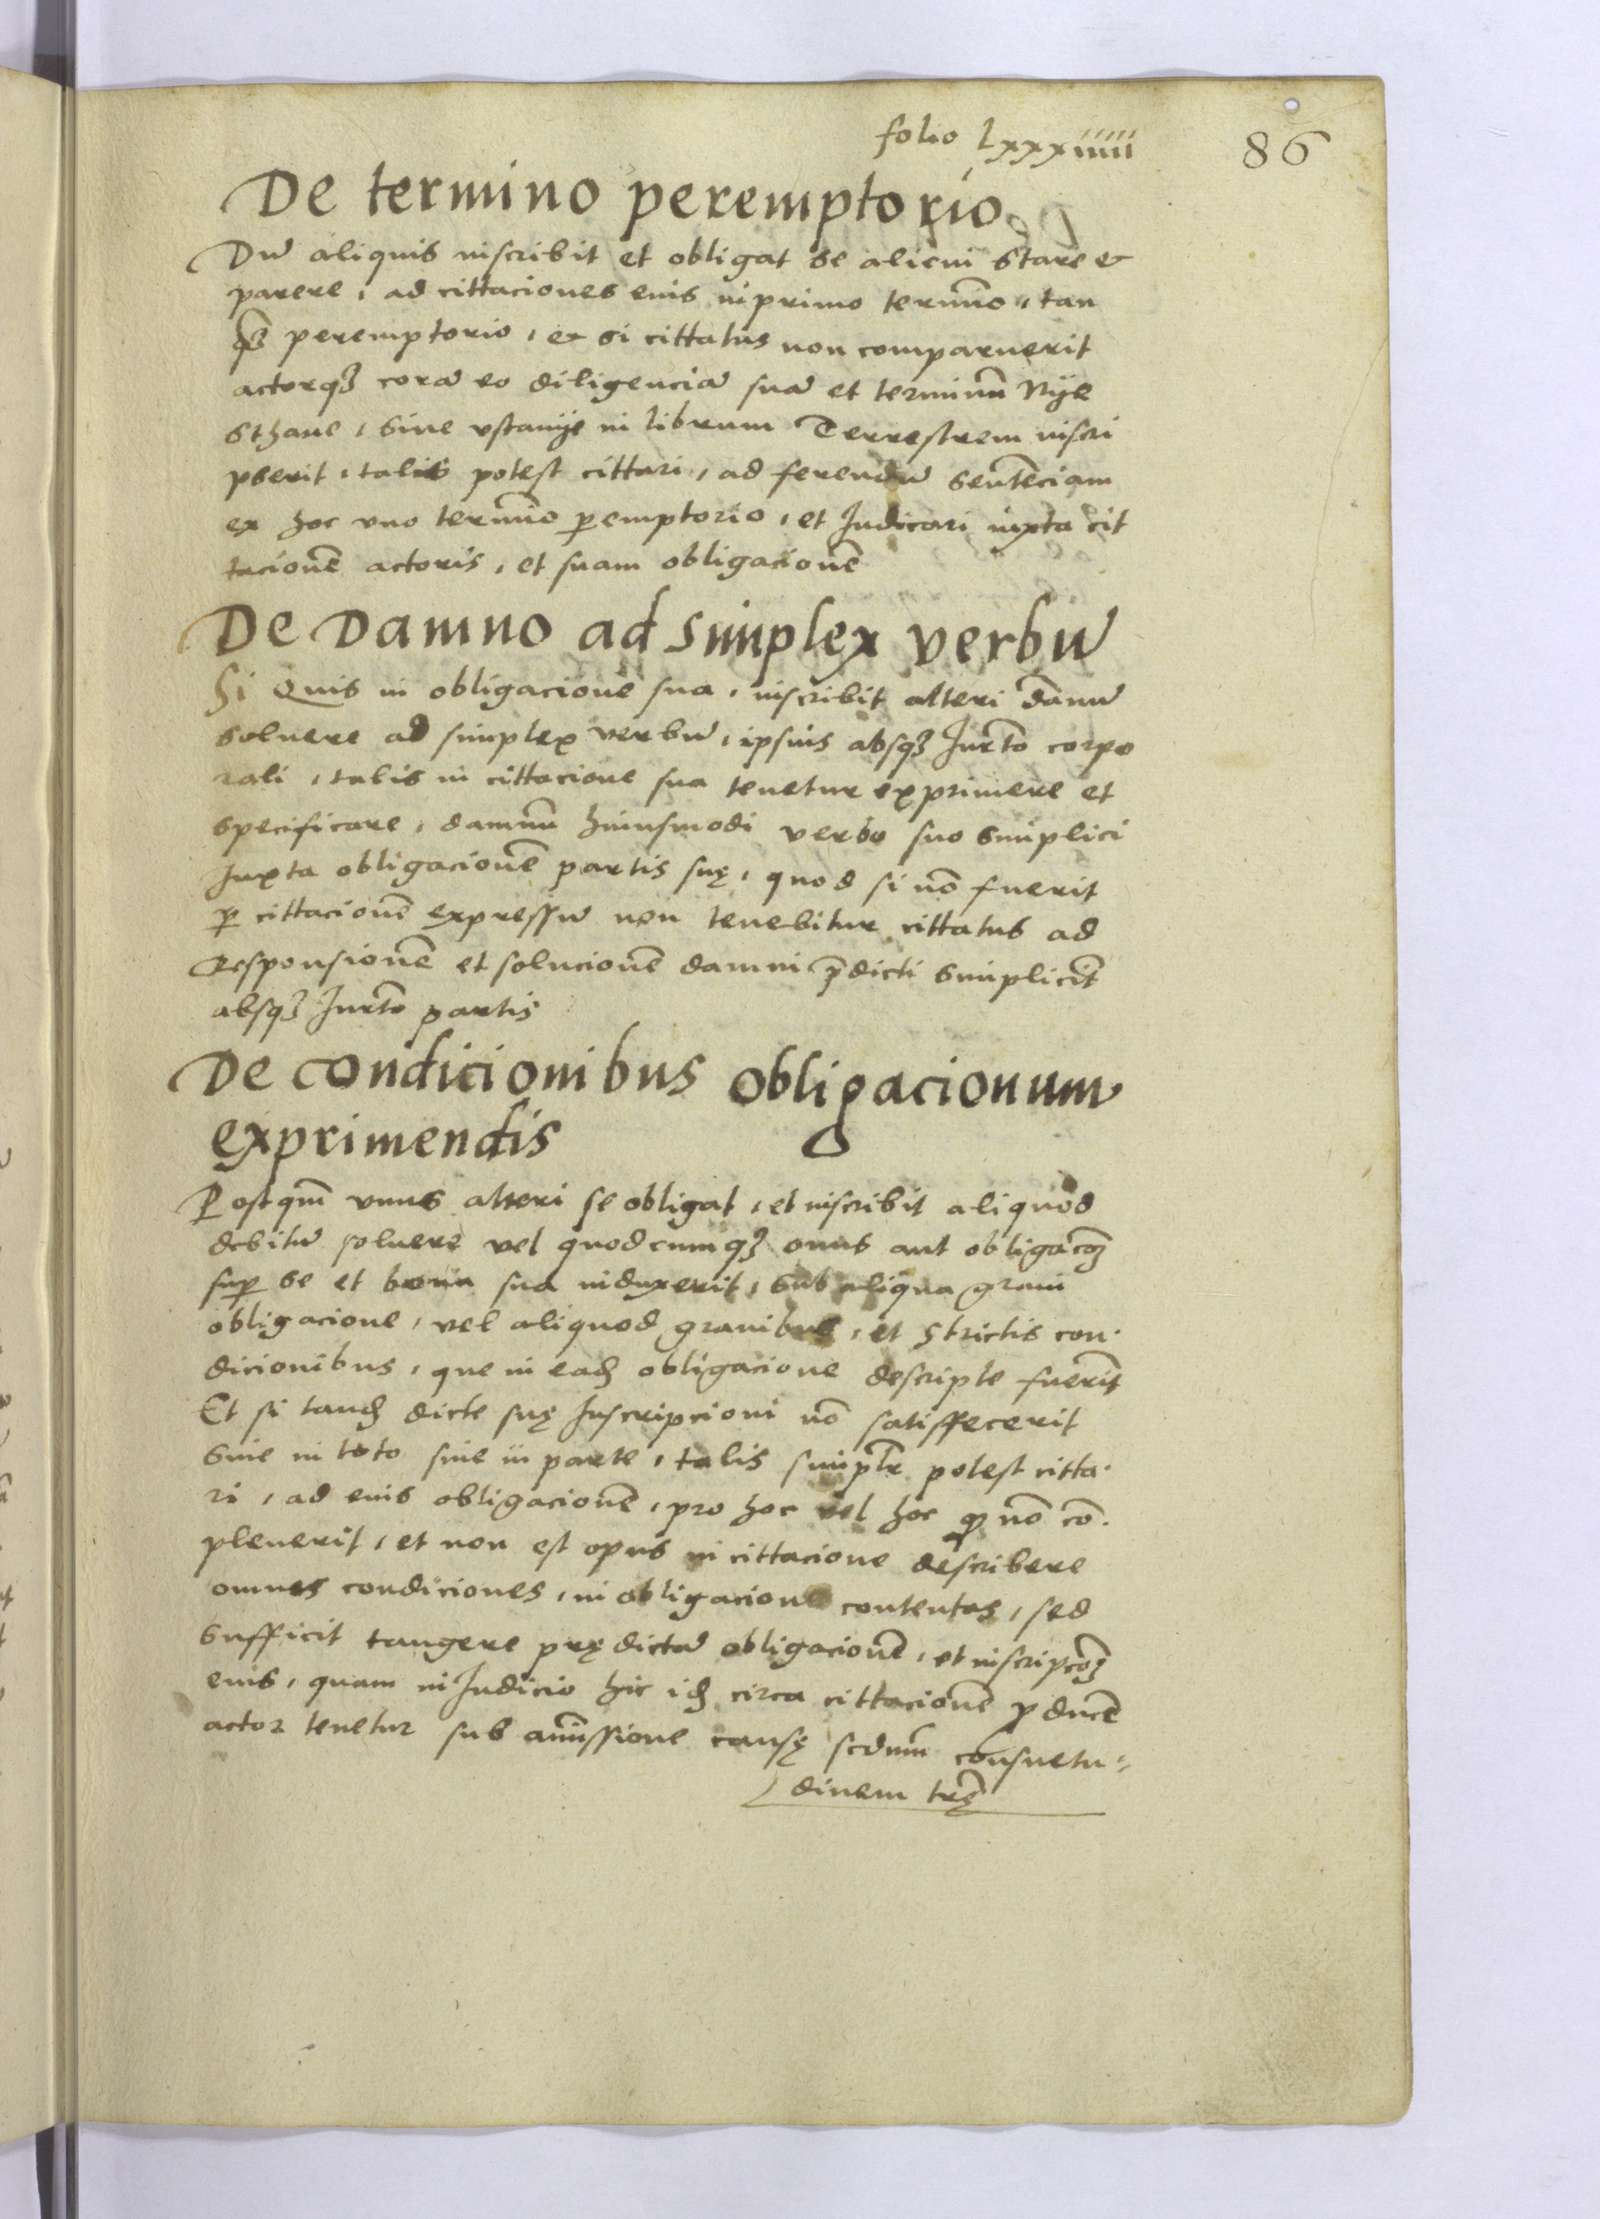 folio lxxxiiiii
86
De termino peremptorio
Dũ aliquis inscribit et obligat se alicui stare et
parere, ad cittaciones eius in primo termĩno, tan
q̃ȝ peremptorio, et si cittatus non comparuerit
actorqȝ corã eo diligenciã suã et terminũ Nije
sthane, siue vstanije in librum Terrestrem inscri
pserit, talis potest cittari, ad ferendũ sentẽciam
ex hoc vno termĩno ꝑemptorio, et Iudicari iuxta cit
tacionẽ actoris, et suam obligacionẽ
De Damno ad simplex verbũ
Si Quis in obligacione sua, inscribit alteri dãnũ
soluere ad simplex verbũ, ipsius absqȝ Iurĩto corpo
rali, talis in cittacione sua tenetur exprimere et
specificare, damnũ huiusmodi verbo suo simplici
Iuxta obligacionẽ partis suę, quod si nõ fuerit
ꝑ cittacionẽ expressũ non tenebitur cittatus ad
responsionẽ et solucionẽ damni p̃dicti simplicit̃
absqȝ Iurĩto partis
De condicionibus obligacionum
exprimendis
Postqm̃ vnus alteri se obligat, et inscribit aliquod
debitũ soluere vel quodcumqȝ onus aut obligacõȝ
suꝑ se et bona sua induxerit, sub aliqua graui
obligacione, vel aliquod grauibus, et strictis con.
dicionibus, que in eadȝ obligacione descripte fuerĩt
Et si tandȝ dicte suę Inscripcioni nõ satisffecerit
siue in toto siue in parte, talis simplr̃ potest citta.
ri, ad eius obligacionẽ, pro hoc vel hoc ꝙ nõ cõ.
pleuerit, et non est opus in cittacione describere
omnes condiciones, in obligacione contentas, sed
sufficit tangere prędictã obligacionẽ, et inscripcõȝ
eius, quam in Iudicio hic idȝ circa cittacionẽ ꝓducẽ
actor tenetur sub amĩssione causę scdum̃ consuetu„
dinem trę̃